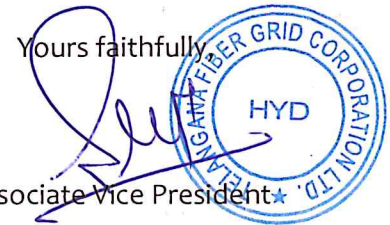 Yours faithfully,
TELANGANA FIBER GRID CORPORATION LTD.
HYD
sociate Vice President